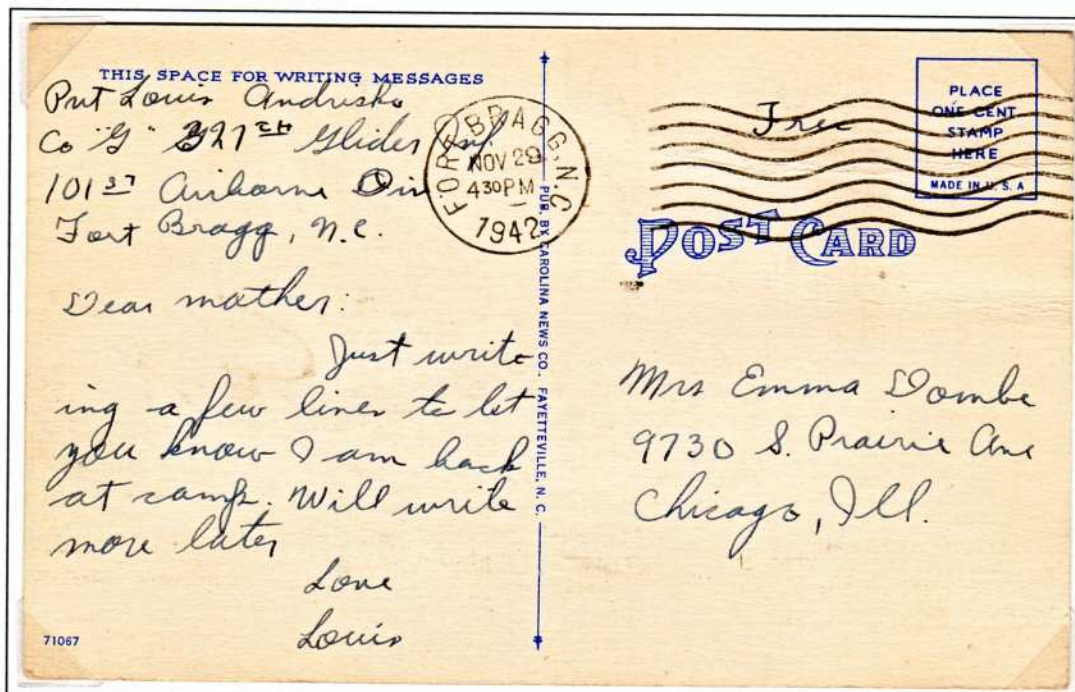 THIS SPACE FOR WRITING MESSAGES
Pvt Louis Andrisko
Co "G" 327th Glider Inf
101st Airborne Div
Fort Bragg, N.C.
Dear mother:
Just writ-
ing a few lines to let
you know I am back
at camp. Will write
more later
Love
Louis
71067
FORT BRAGG, N.C.
NOV 29
4 30 PM
1942
PUB. BY CAROLINA NEWS CO., FAYETTEVILLE, N. C.
Free
PLACE
ONE CENT
STAMP
HERE
MADE IN U. S. A
POST CARD
Mrs Emma Dombe
9730 S. Prairie Ave
Chicago, Ill.